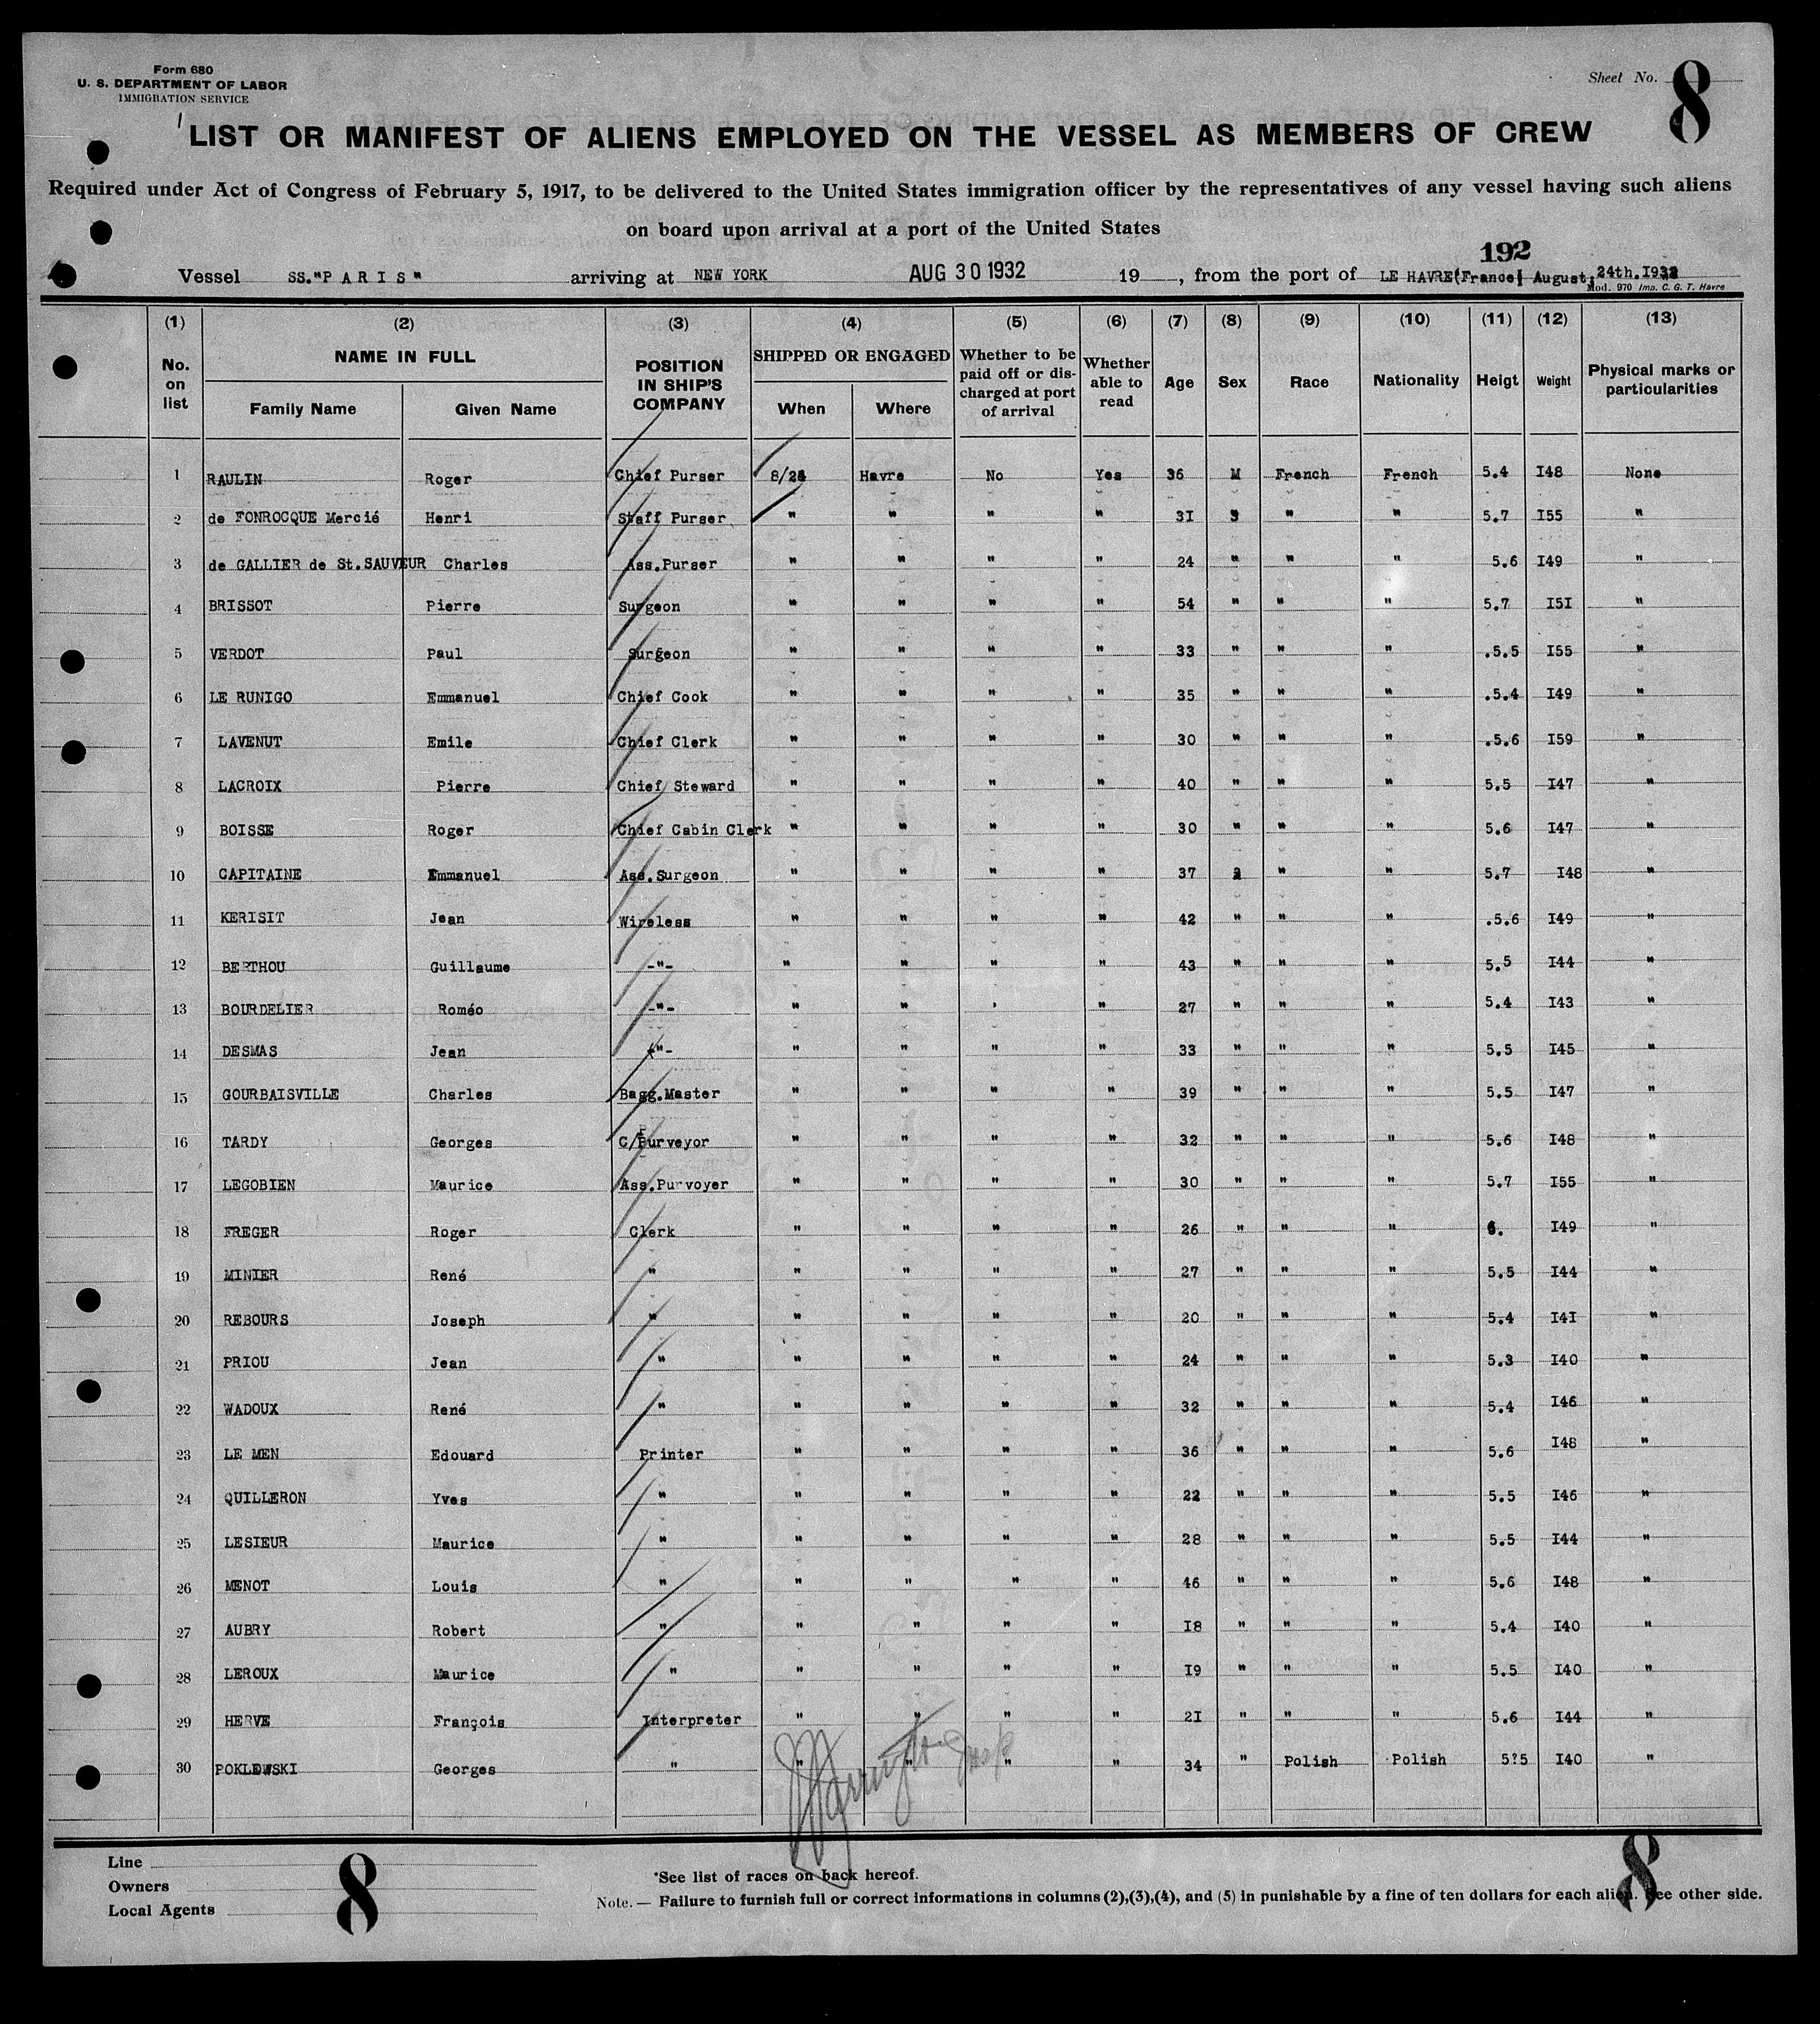 Form 680
U. S. DEPARTMENT OF LABOR
IMMIGRATION SERVICE
Sheet No. 8
LIST OR MANIFEST OF ALIENS EMPLOYED ON THE VESSEL AS MEMBERS OF CREW
Required under Act of Congress of February 5, 1917, to be delivered to the United States immigration officer by the representatives of any vessel having such aliens
on board upon arrival at a port of the United States
192
Vessel SS."P A R I S" arriving at NEW YORK AUG 30 1932 19 , from the port of LE HAVRE (France) August, 24th. I932
Mod. 970 Imp. C. G. T. Havre
(1) (2) (3) (4) (5) (6) (7) (8) (9) (10) (11) (12) (13)
No. on list NAME IN FULL Family Name Given Name POSITION IN SHIP'S COMPANY SHIPPED OR ENGAGED When Where Whether to be paid off or discharged at port of arrival Whether able to read Age Sex Race Nationality Heigt Weight Physical marks or particularities
1 RAULIN Roger Chief Purser 8/24 Havre No Yes 36 M French French 5.4 I48 None
2 de FONROCQUE Mercié Henri Staff Purser " " " " 3I " " " 5.7 I55 "
3 de GALLIER de St.SAUVEUR Charles Ass.Purser " " " " 24 " " " 5.6 I49 "
4 BRISSOT Pierre Surgeon " " " " 54 " " " 5.7 I5I "
5 VERDOT Paul Surgeon " " " " 33 " " " .5.5 I55 "
6 LE RUNIGO Emmanuel Chief Cook " " " " 35 " " " .5.4 I49 "
7 LAVENUT Emile Chief Clerk " " " " 30 " " " .5.6 I59 "
8 LACROIX Pierre Chief Steward " " " " 40 " " " 5.5 I47 "
9 BOISSE Roger Chief Cabin Clerk " " " " 30 " " " 5.6 I47 "
10 CAPITAINE Emmanuel Ass.Surgeon " " " " 37 " " 5.7 I48 "
11 KERISIT Jean Wireless " " " " 42 " " " .5.6 I49 "
12 BERTHOU Guillaume -"- " " " " 43 " " " 5.5 I44 "
13 BOURDELIER Roméo -"- " " ' " 27 " " " 5.4 I43 "
14 DESMAS Jean -"- " " " " 33 " " " 5.5 I45 "
15 GOURBAISVILLE Charles Bagg.Master " " " " 39 " " " 5.5 I47 "
16 TARDY Georges C/Purveyor " " " " 32 " " " 5.6 I48 "
17 LEGOBIEN Maurice Ass.Purvoyer " " " " 30 " " " 5.7 I55 "
18 FREGER Roger Clerk " " " " 26 " " " 6. I49 "
19 MINIER René " " " " " 27 " " " 5.5 I44 "
20 REBOURS Joseph " " " " " 20 " " " 5.4 I4I "
21 PRIOU Jean " " " " " 24 " " " 5.3 I40 "
22 WADOUX René " " " " " 32 " " " 5.4 I46 "
23 LE MEN Edouard Printer " " " " 36 " " " 5.6 I48 "
24 QUILLERON Yves " " " " " 22 " " " 5.5 I46 "
25 LESIEUR Maurice " " " " " 28 " " " 5.5 I44 "
26 MENOT Louis " " " " " 46 " " " 5.6 I48 "
27 AUBRY Robert " " " " " I8 " " " 5.4 I40 "
28 LEROUX Maurice " " " " " I9 " " " 5.5 I40 "
29 HERVE François Interpreter " " " " 2I " " " 5.6 I44 "
30 POKLEWSKI Georges " " " " " 34 " Polish Polish 5?5 I40 "
Line
Owners
Local Agents
8
*See list of races on back hereof.
Note.— Failure to furnish full or correct informations in columns (2),(3),(4), and (5) in punishable by a fine of ten dollars for each alien. See other side.
8